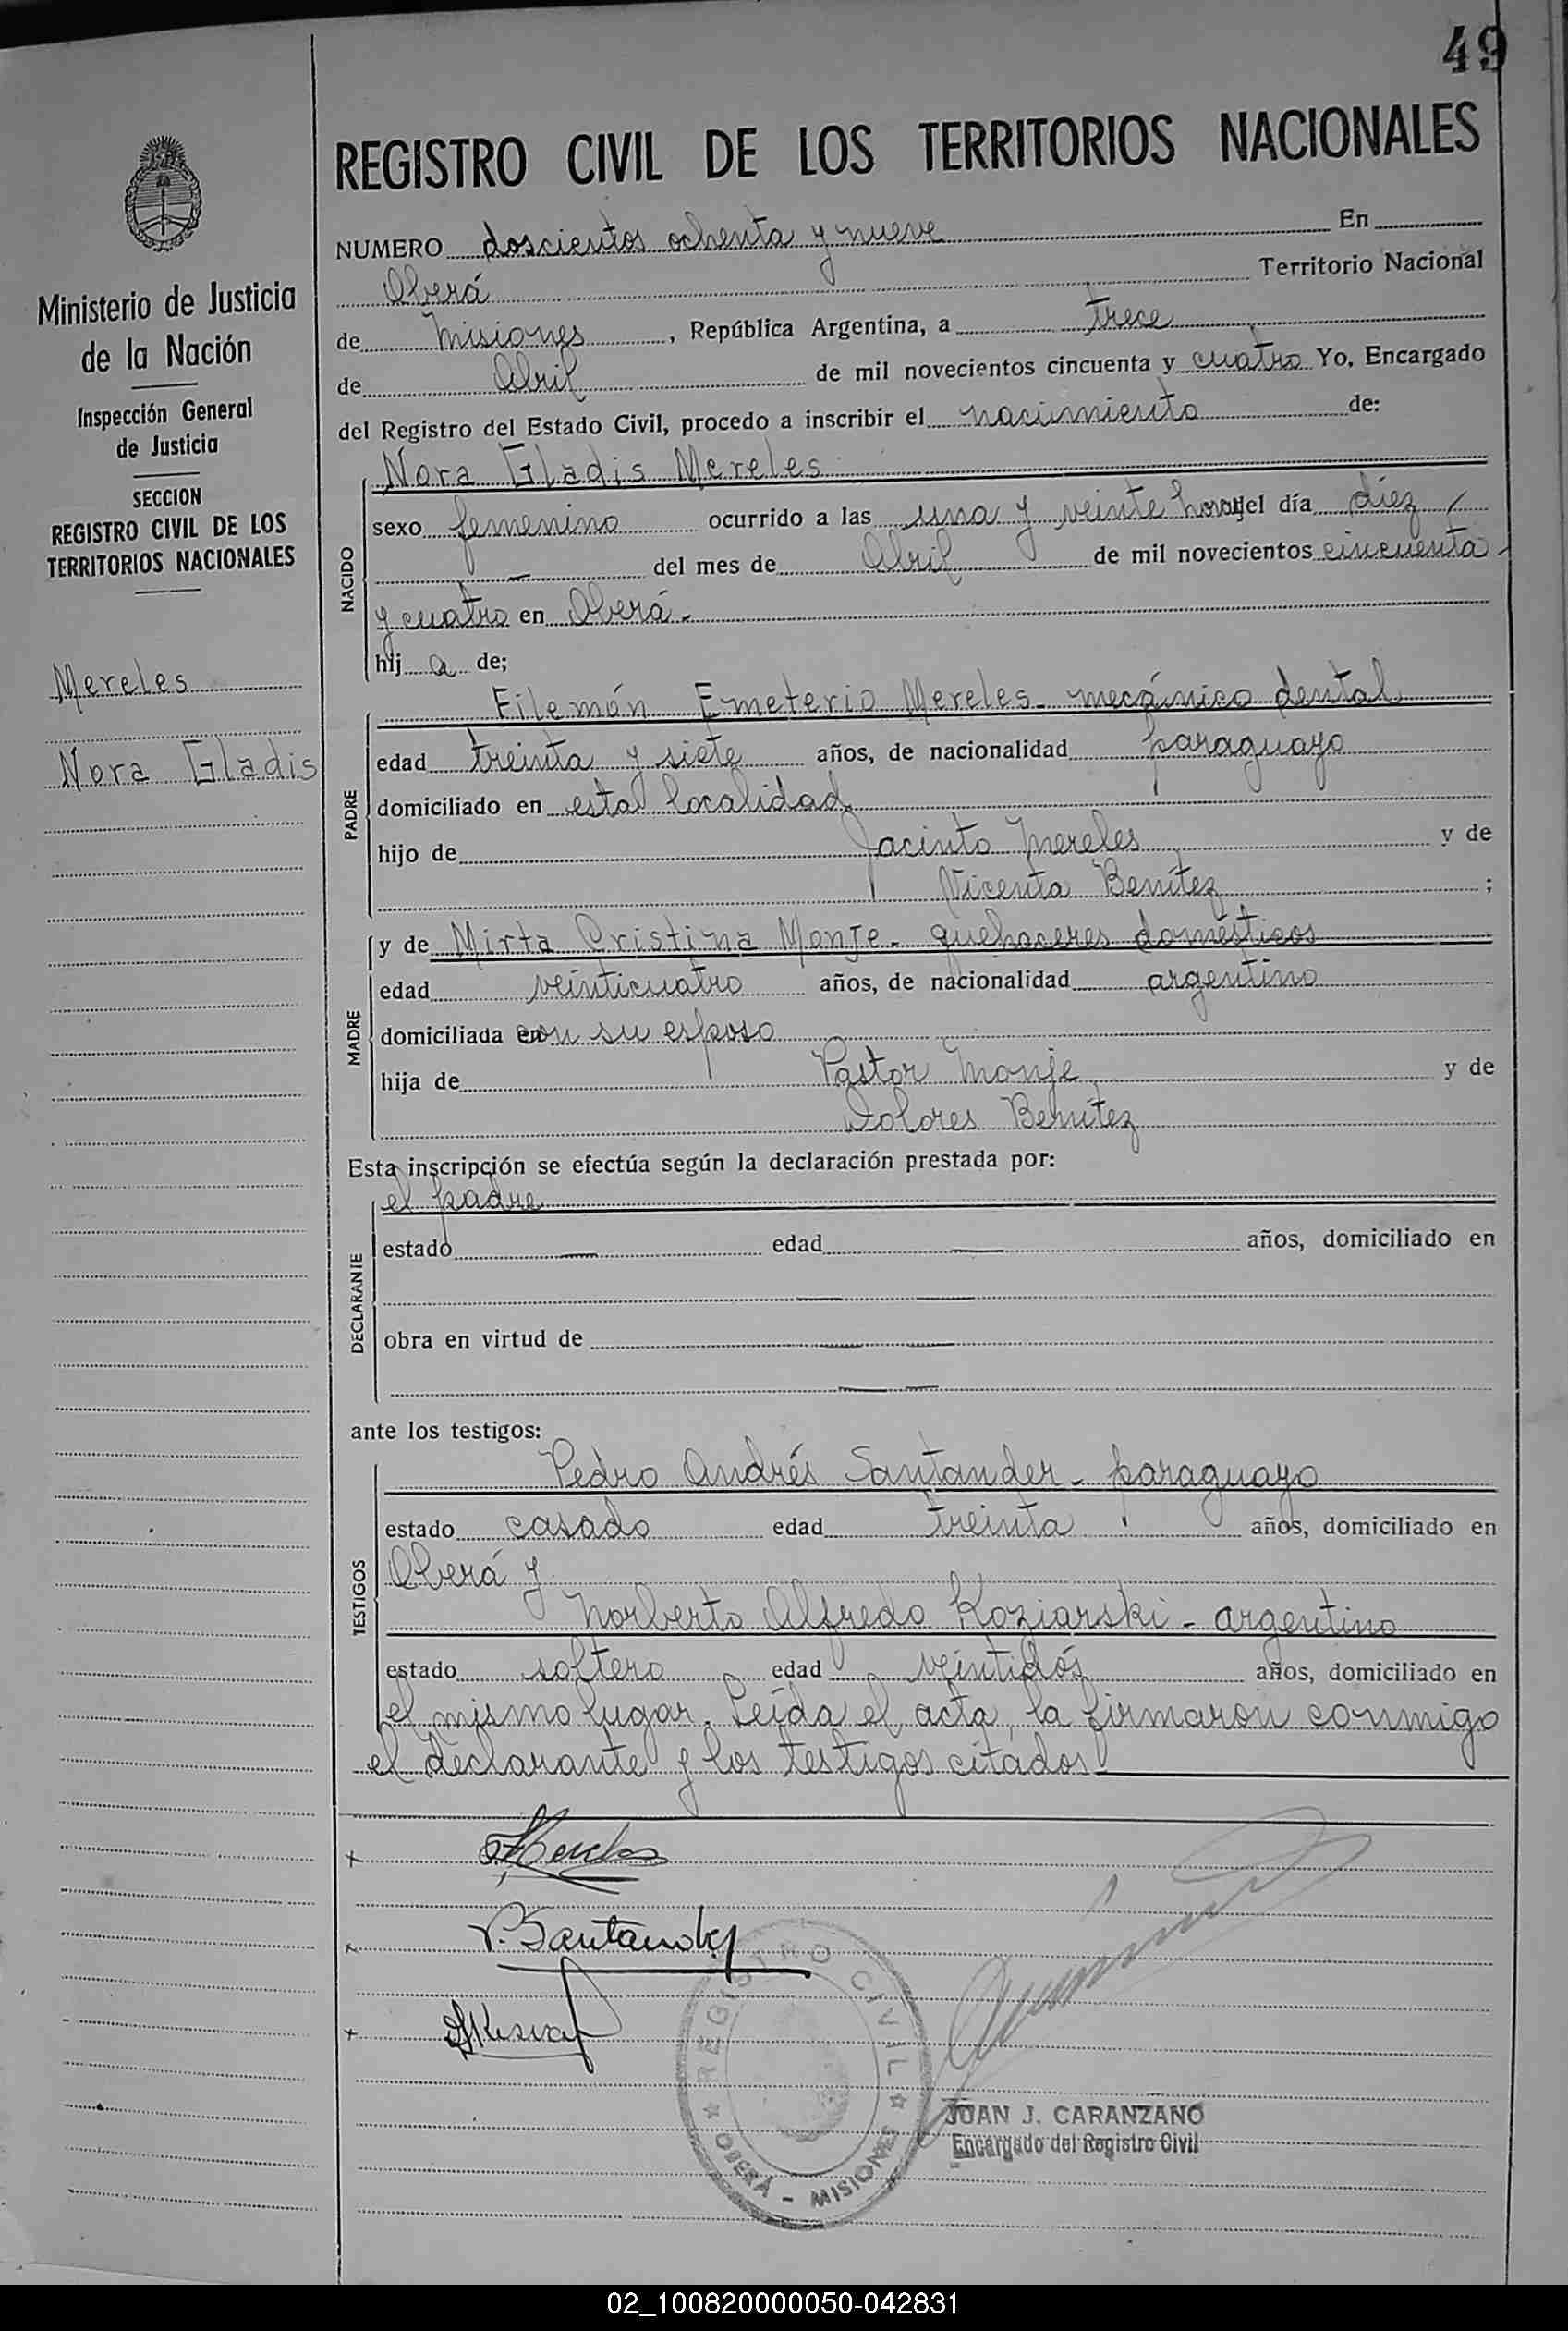 49
REGISTRO CIVIL DE LOS TERRITORIOS NACIONALES
Ministerio de Justicia
de la Nación
Inspección General
de Justicia
SECCION
REGISTRO CIVIL DE LOS
TERRITORIOS NACIONALES
Mereles
Nora Gladis
NUMERO doscientos ochenta y nueve En
Oberá Territorio Nacional
de Misiones, República Argentina, a trece
de Abril de mil novecientos cincuenta y cuatro Yo, Encargado
del Registro del Estado Civil, procedo a inscribir el nacimiento de:
NACIDO
Nora Gladis Mereles
sexo femenino ocurrido a las una y veinte horas del día diez
del mes de Abril de mil novecientos cincuenta
y cuatro en Oberá.-
hij a de;
PADRE
Filemón Emeterio Mereles - mecánico dental
edad treinta y siete años, de nacionalidad paraguayo
domiciliado en esta localidad
hijo de Jacinto Mereles y de
Vicenta Benítez ;
MADRE
y de Mirta Cristina Monje - quehaceres domésticos
edad veinticuatro años, de nacionalidad argentino
domiciliada en con su esposo
hija de Pastor Monje y de
Dolores Benítez
Esta inscripción se efectúa según la declaración prestada por:
DECLARANTE
el padre
estado — edad — años, domiciliado en
obra en virtud de
ante los testigos:
TESTIGOS
Pedro Andrés Santander - paraguayo
estado casado edad treinta años, domiciliado en
Oberá y
Norberto Alfredo Koziarski - argentino
estado soltero edad veintidós años, domiciliado en
el mismo lugar. Leída el acta, la firmaron conmigo
el declarante y los testigos citados
Mereles
P. Santander
REGISTRO CIVIL
OBERÁ - MISIONES
JUAN J. CARANZANO
Encargado del Registro Civil
02_100820000050-042831